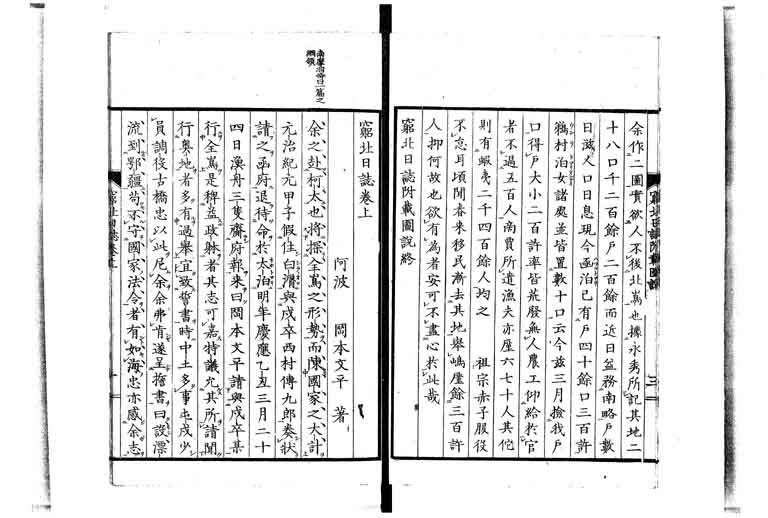 余作二圖實欲人不後北嶌也據永秀所記其地二
十八口千二百餘戶二百餘而近日益務南略戶數
日滋人口日息現今函泊已有戶四十餘口三百許
鵜村泊女諸處並皆置數十口云今茲三月撿我戶
口得戶大小二百許率皆荒廢無人農工仰給於官
者不過五百人商賈所遣漁夫亦廑六七十人其佗
則有蝦夷二千四百餘人均之 祖宗赤子服役
不怠耳頃聞春來移民漸去其地舉嶋廑餘三百許
人抑何故也欲有為者安可不盡心於此哉
窮北日誌附載圖說終
窮北日誌附載圖說
三
窮北日誌卷上
阿波 岡本文平 著
余之赴柯太也將探全嶌之形勢而陳國家之大計
元治紀元甲子假住白滑與戍卒西村傳九郎奏狀
請之函府退待命於大泊明年慶應乙丑三月二十
四日漢舟三隻齎府報來曰岡本文平請與戍卒某
行全嶌是稗益政躰者其志可嘉特議允其所請聞
行奧地者多有過舉宜致誓書時中土多事屯戍少
員詢役古橋忠以此尼余余弗肯遂呈擔書曰設漂
流到鄂疆苟不守國家法令者有如海忠亦感余志
窮北日誌卷上
一